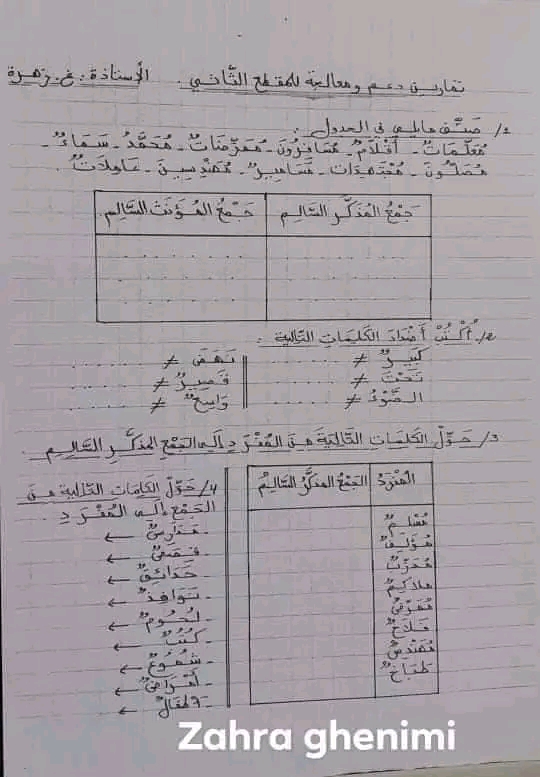 تمارين دعم ومعالجة للمقطع الثاني. الأستاذة: غ. زهرة
1/ صَنِّف مايلي في الجدول:
مُعَلِّمَاتٌ - أَقْلَامٌ - مُسَافِرُونَ - مُمَرِّضَاتٌ - مُحَمَّدٌ - سَمَاءٌ -
مُصَلُّونَ - مُجْتَهِدَات - مَسَامِيرٌ - مُهَنْدِسِينَ - عَامِلَاتٌ.
جَمْعُ المُذَكَّرِ السَّالِمِ
جَمْعُ المُؤَنَّثِ السَّالِمِ
2/ أُكْتُبْ أَضْدَادَ الكَلِمَاتِ التَّالِيَةِ:
كَبِيرٌ ≠ ........
نَهَضَ ≠ ........
تَحْتَ ≠ ........
قَصِيرٌ ≠ ........
الضَّوْءُ ≠ ........
وَاسِعٌ ≠ ........
3/ حَوِّلْ الكَلِمَاتِ التَّالِيَةَ مِنَ المُفْرَدِ إِلَى الجَمْعِ المذَكَّرِ السَّالِمِ.
المُفْرَدُ
الجَمْعُ المُذَكَّرُ السَّالِمُ
مُسْلِمٌ
مُؤَلِّفٌ
مُدَرِّبٌ
مُلَاكِمٌ
مُمَرِّضٌ
فَلَّاحٌ
مُهَنْدِسٌ
طَبَّاخٌ
4/ حَوِّلْ الكَلِمَاتِ التَّالِيَةَ مِنَ
الجَمْعِ إِلَى المُفْرَدِ.
- مَدَارِسٌ ←
- قِصَصٌ ←
- حَدَائِقٌ ←
- نَوَافِذٌ ←
- لُحُومٌ ←
- كُتُبٌ ←
- شُمُوعٌ ←
- أَمْرَاضٌ ←
- أَطْفَالٌ ←
Zahra ghenimi